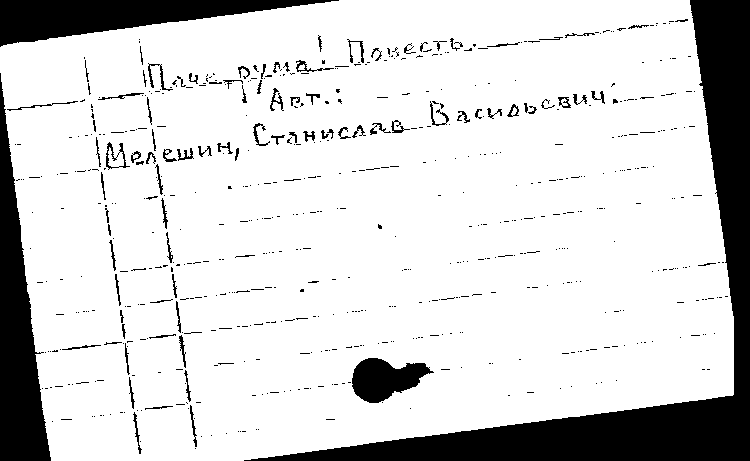 Паче, рума! Повесть.
Авт.:
Мелешин, Станислав Васильевич.